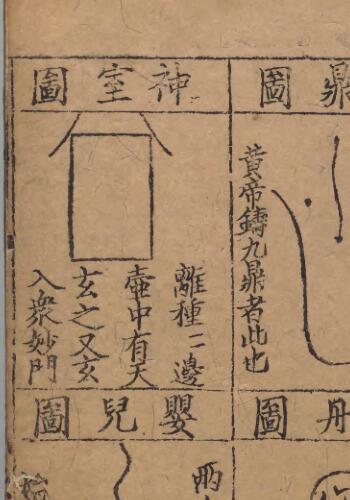 鼎圖
黃帝鑄九鼎者此也
神室圖
離種二邊
壺中有天
玄之又玄
入眾妙門
丹圖
嬰兒圖
兩